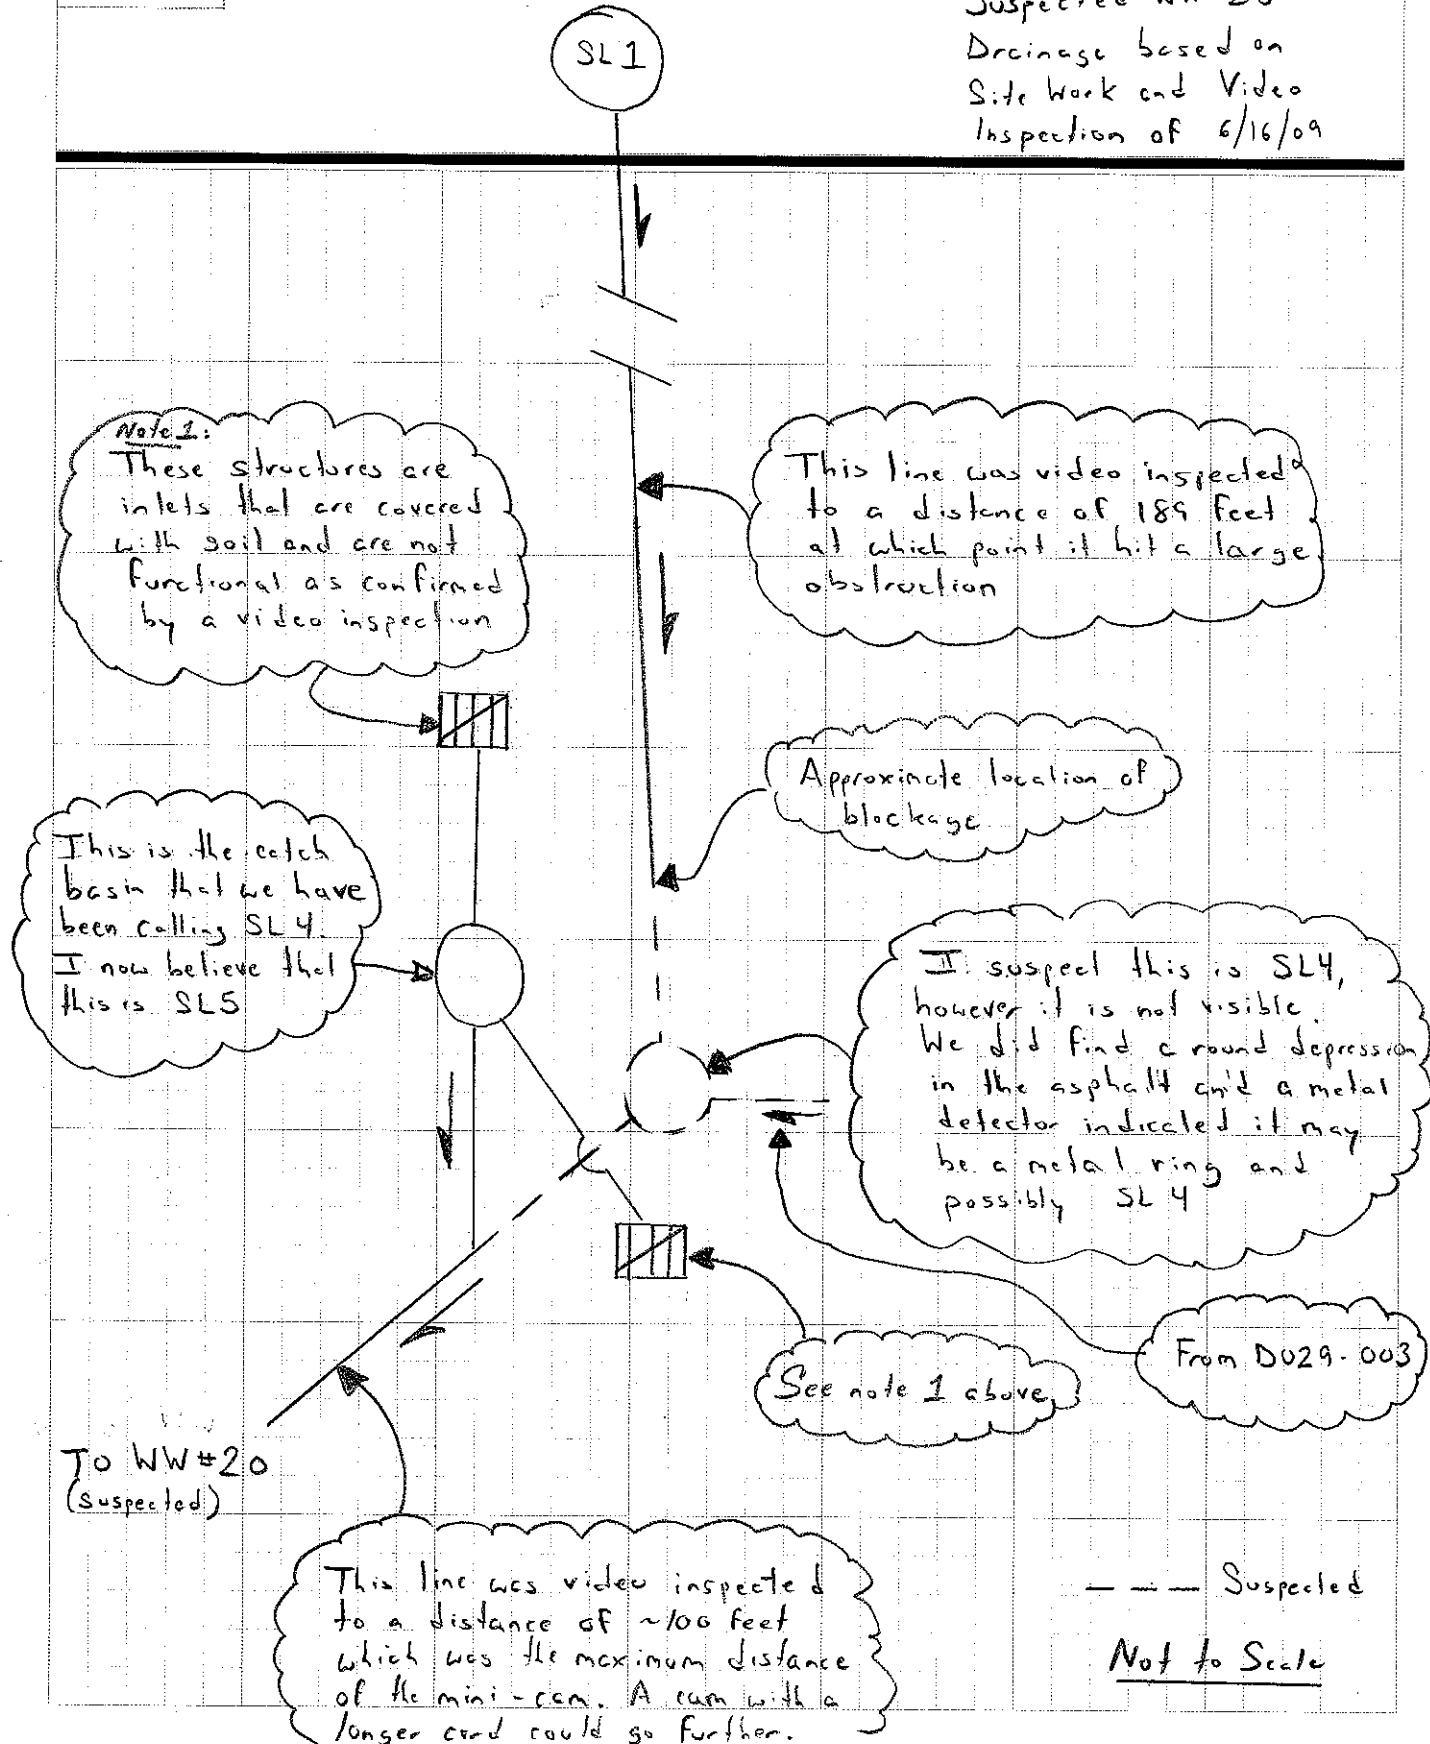 SL1
Suspected WW 20
Drainage based on
Site Work and Video
Inspection of 6/16/09
Note 1:
These structures are
inlets that are covered
with soil and are not
functional as confirmed
by a video inspection
This line was video inspected
to a distance of 189 feet
at which point it hit a large
obstruction
Approximate location of
blockage
This is the catch
basin that we have
been calling SL4.
I now believe that
this is SL5
I suspect this is SL4,
however it is not visible.
We did find a round depression
in the asphalt and a metal
detector indicated it may
be a metal ring and
possibly SL4
From DU29-003
See note 1 above
To WW #20
(suspected)
This line was video inspected
to a distance of ~100 feet
which was the maximum distance
of the mini-cam. A cam with a
longer cord could go further.
--- Suspected
Not to Scale